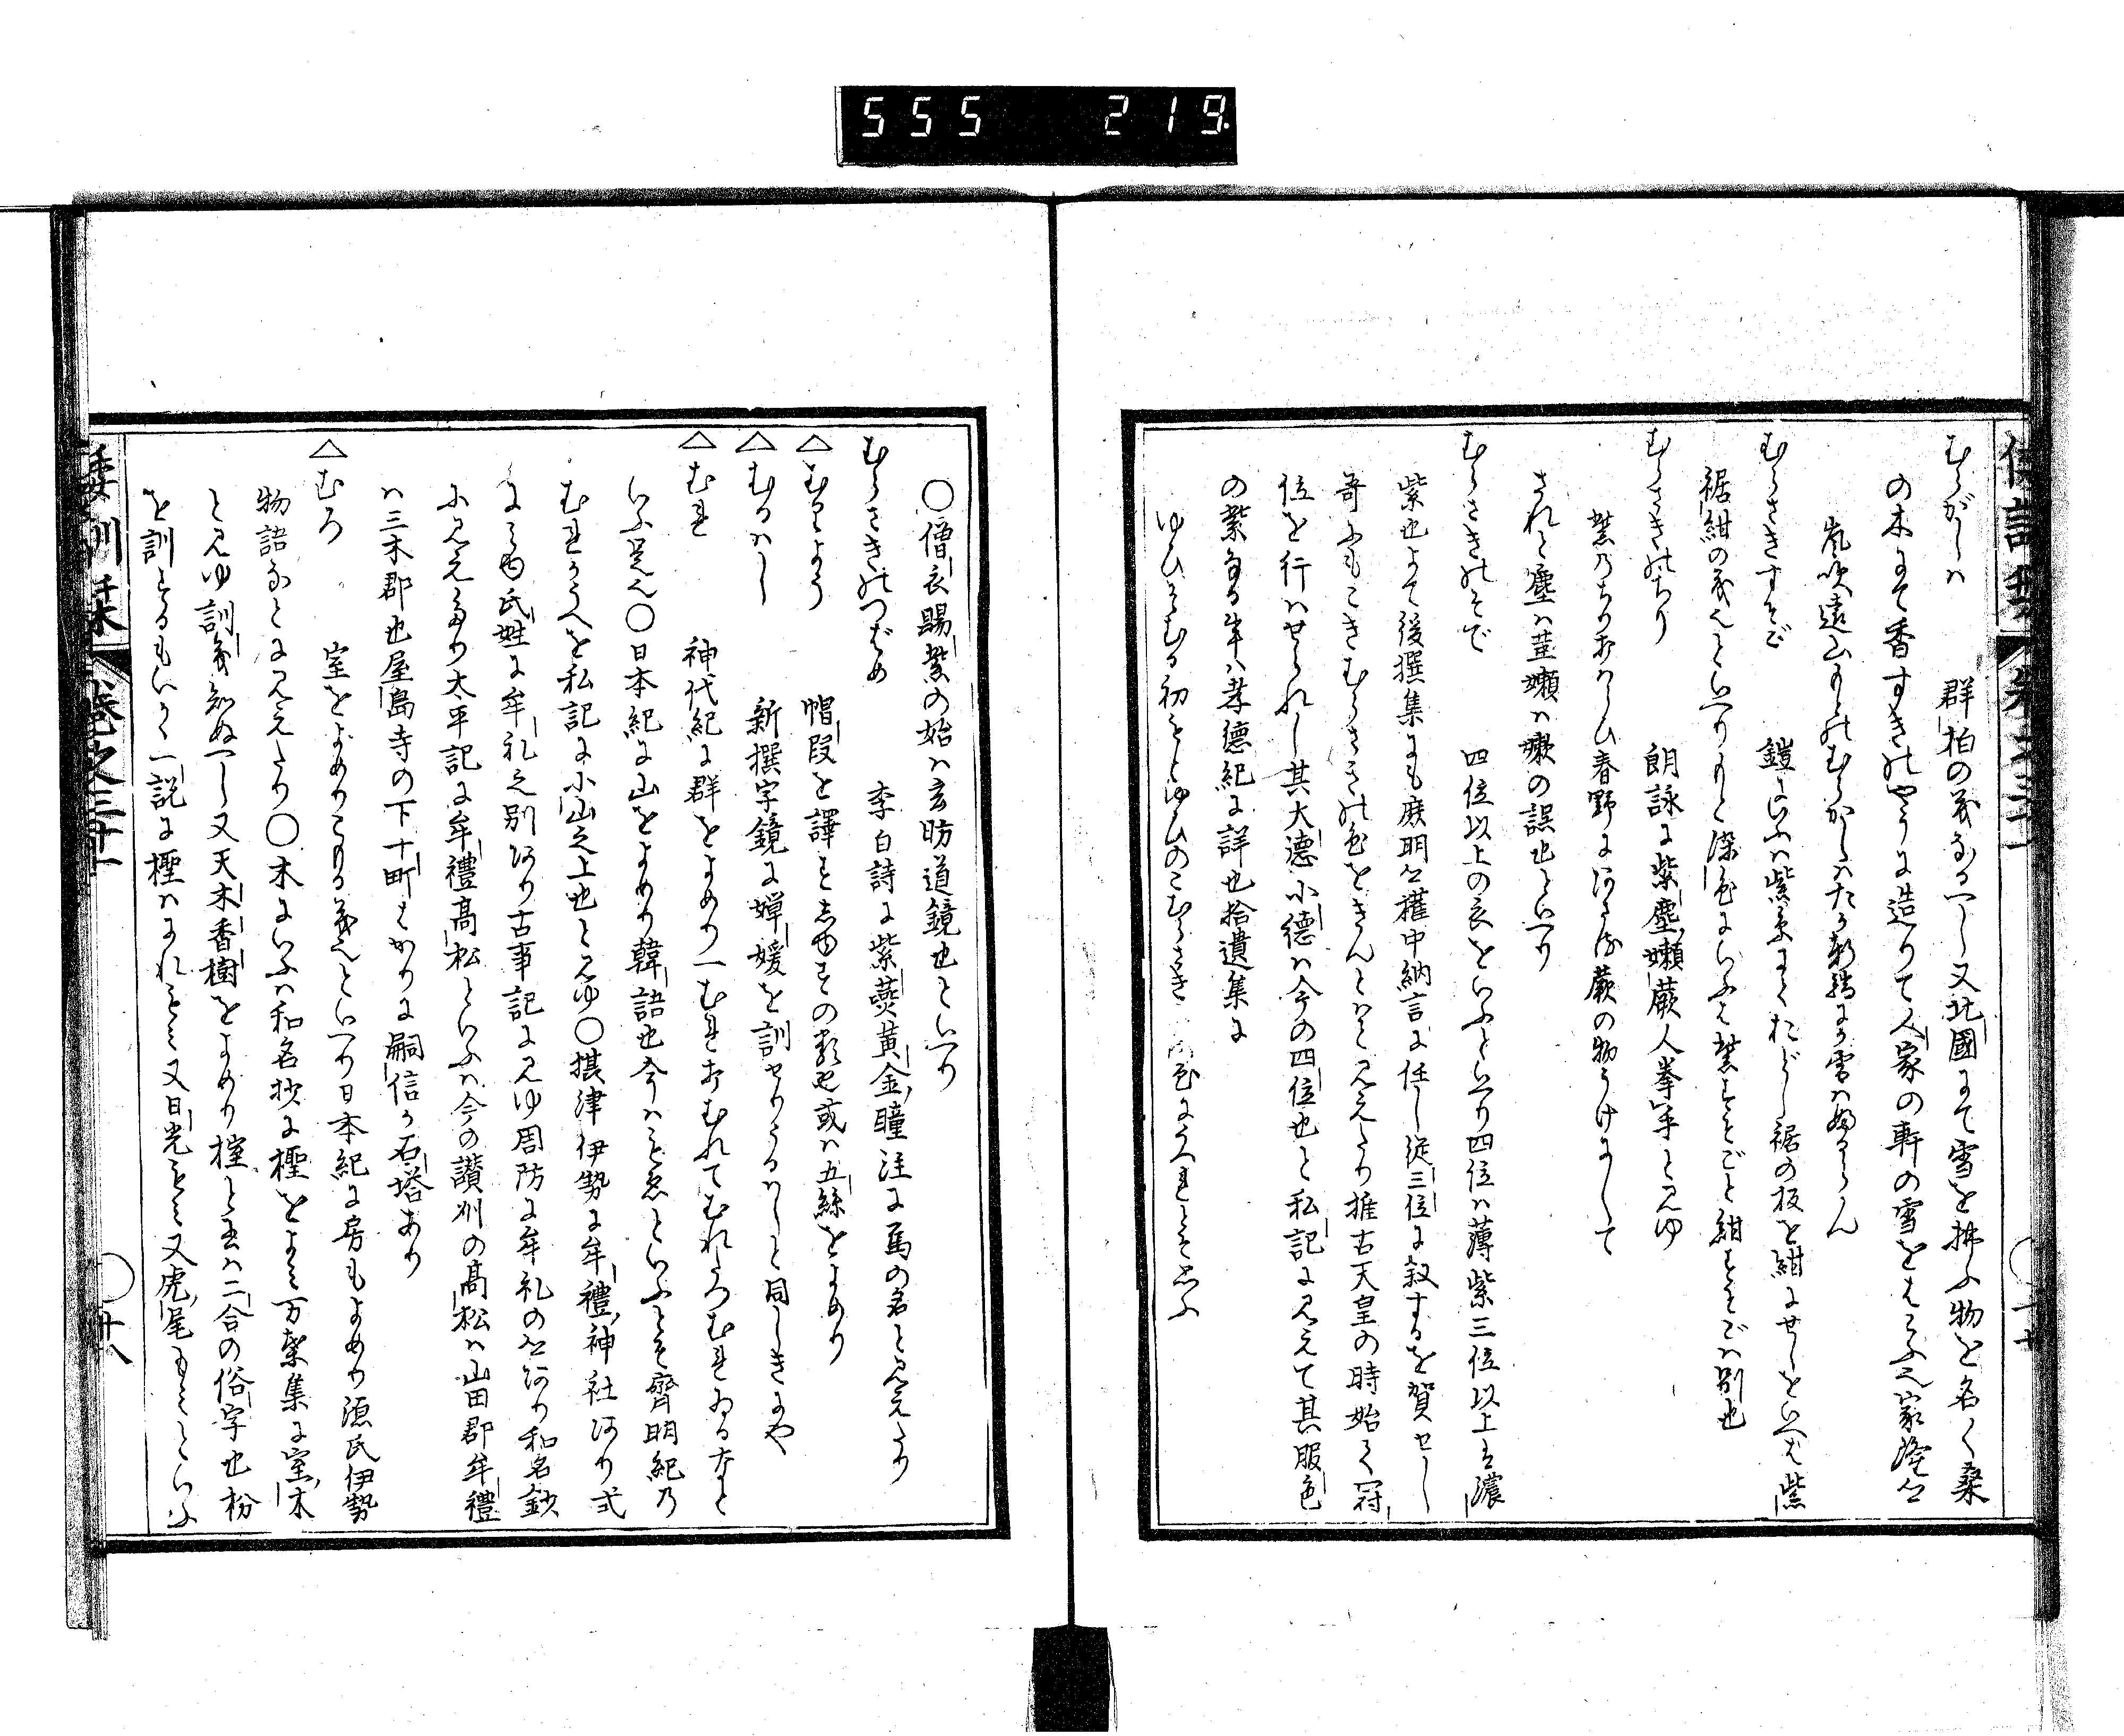 555 219.
むらがしハ 群柏の義なるべし又北國にて雪を拂ふ物を名く桑
の木にて香すきのやうに造りて人家の軒の雪をはらふ也家隆公
嵐吹遠山もとのむらがしハたが軒端より雪ハ
むらさきすそご 鎧にいふハ紫糸にておどし裾の板を紺にせしをいへば紫
裾紺の義也といへりもと深色にいふは紫すそごと紺すそごハ別也
むらさきのちり 朗詠に紫塵嬾蕨人拳手と見ゆ
紫乃ちりうちはらひ春野にあさる蕨の物うげにして
されど塵ハ茎嬾ハ嫩の誤也といへり
むらさきのそで 四位以上の衣をいふといへり四位ハ薄紫三位以上は濃
紫也よて後撰集にも庶明公權中納言に任し従三位に叙するを賀せし
哥にもこきむらさきの色をきんとハと見えたり推古天皇の時始て冠
位を行ハせられし其大德小德ハ今の四位也と私記に見えて其服色
の紫なる事ハ孝德紀に詳也拾遺集に
ゆひそむる初もとゆひのこむらさき
〇僧衣賜紫の始ハ玄昉道鏡也といへり
むらさきのつばめ 李白詩に紫燕黄金瞳注に馬の名と見えたり
△むりよう 帽段を譯せり
△むるハし 新撰字鏡に嬋媛を訓せりうるハしと同しきにや
△むれ 神代紀に群をよめり一むれ
いふ是也〇日本紀に山をよめり韓語也今ハもゑといふとぞ齊明紀乃
むれがうへを私記に小山之上也と見ゆ〇摂津伊勢に牟禮神社あり式
に見ゆ氏姓に牟礼之別あり古事記に見ゆ周防に牟礼の公あり和名鈔
に見えたり太平記に牟禮高松といふハ今の讃州の高松ハ山田郡牟禮
ハ三木郡也屋島寺の下十町ばかりに嗣信が石塔あり
△むろ 室をよめりこもる義也といへり日本紀に房もよめり源氏伊勢
物語などに見えたり〇木にいふハ和名抄に檉をよみ万葉集に室木
と見ゆ訓義知ぬべし又天木香樹をよめり榁と書ハ二合の俗字也枌
を訓するもいかゝ一說に檉ハにれもミ又日光もミ又虎尾もミといふ
倭訓栞 卷之三十一 〇廿八